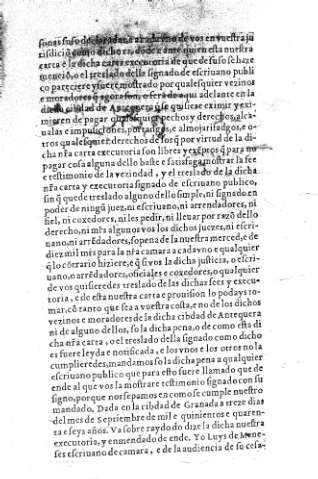 sonas suso declaradas a cada vno de vos en vuestra ju
risdiciō como dicho es, dōde ante quien esta nuestra
carta è la dicha carta executoria de que de suso se haze
menciō, o el treslado della signado de escriuano publi
co pareciere y fuere mostrado por qualesquier vezinos
e moradores q̄ agora son, o seran de aqui adelante en la
dicha cibdad de Antequera q̄ se quisieren eximir y exi-
mieren de pagar qualesquier pechos y derechos, alca-
ualas e impusiciones, portadgos, e almojarifadgos, e o-
tros qualesquier derechos de los q̄ por virtud de la di-
cha nr̄a carta executoria son libres y exēptos q̄ para no
pagar cosa alguna dello baste e satisfaga mostrar la fee
e testimonio de la vezindad, y el treslado de la dicha
nr̄a carta y executoria signado de escriuano publico,
sin q̄ quede treslado alguno dello simple, ni signado en
poder de ningū juez, ni escriuano, ni arrendadores, ni
fiel, ni cogedores, ni les pedir, ni lleuar por razō dello
derecho, ni mr̄s algunos vos los dichos juezes, ni escri-
uano, ni arrēdadores, so pena de la nuestra merced, e de
diez mil mr̄s para la nr̄a camara a cada vno e qualquier
q̄ lo cōtrario hiziere, e q̄ si vos la dicha justicia, o escri-
uano, o arrēdadores, oficiales e cogedores, o qualquier
de vos quisieredes treslado de las dichas fees y execu-
toria, e de esta nuestra carta e prouision lo podays to-
mar, cō tanto que sea a vuestra costa, e no de los dichos
vezinos e moradores de la dicha cibdad de Antequera
ni de alguno dellos, so la dicha pena, o de como esta di
cha nr̄a carta, o el treslado della signado como dicho
es fuere leyda e notificada, e los vnos e los otros no la
cumplieredes, mandamos so la dicha pena a qualquier
escriuano publico que para esto fuere llamado que de
ende al que vos la mostrare testimonio signado con su
signo, porque nos sepamos en como se cumple nuestro
mandado. Dada en la cibdad de Granada a treze dias
del mes de Septiembre de mil e quinientos e quaren-
ta e seys años. Va sobre raydo do dize la dicha nuestra
executoria, y enmendado de ende. Yo Luys de Mene-
ses escriuano de camara, e de la audiencia de su cesa-